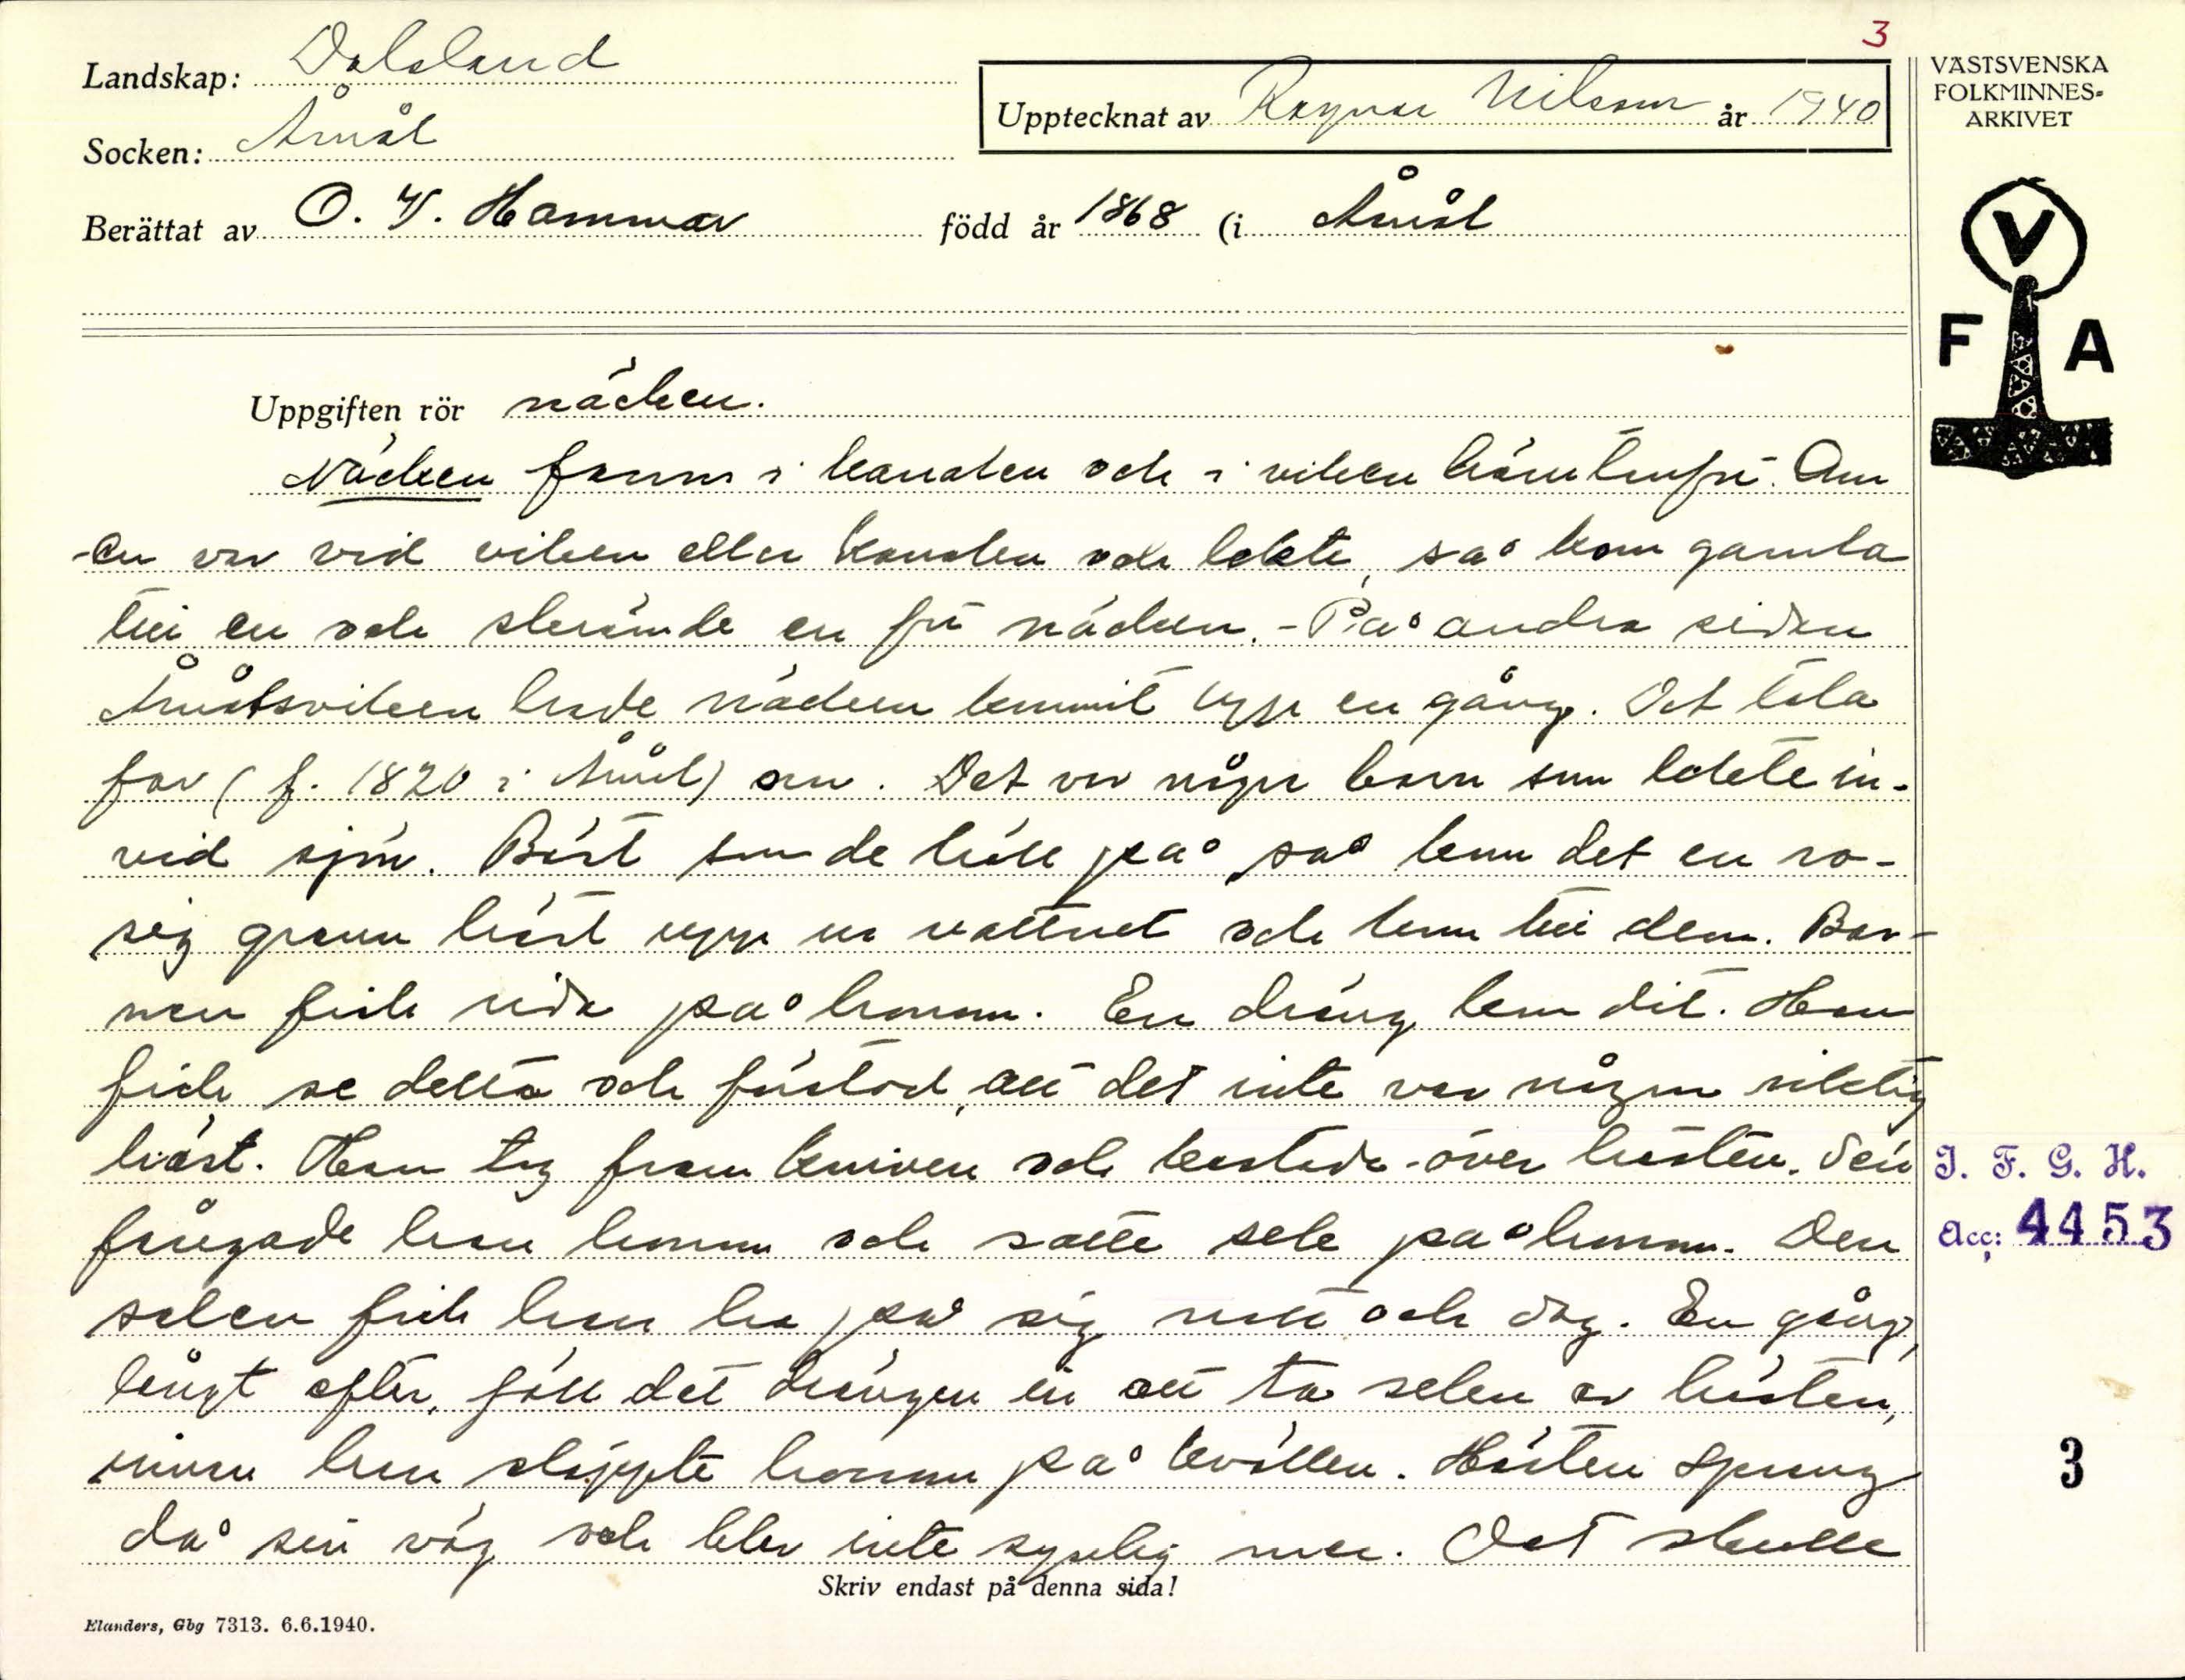 3
Landskap: Dalsland
Upptecknat av Ragnar Nilsson år 1940
VÄSTSVENSKA
FOLKMINNES-
ARKIVET
Socken: Åmål
Berättat av O. W. Hammar född år 1868 (i Åmål
V
F A
Uppgiften rör näcken.
Näcken fanns i kanalen och i viken häruteför. Om
en var vid viken eller kanalen och lekte, så kom gamla
till en och skrämde en för näcken. - På andra sidan
Åmålsviken hade näcken kommit upp en gång. Det tala
far (f. 1820 i Åmål) om. Det var några barn som lekte in-
vid sjön. Bäst som de höll på så kom det en ro-
sig grann häst upp ur vattnet och kom till dem. Bar-
nen fick rida på honom. En dräng kom dit. Han
fick se detta och förstod, att det inte var någon riktig
häst. Han tog fram kniven och kastade över hästen. Sen
fångade han honom och satte sele på honom. Den
selen fick han ha på sig natt och dag. En gång,
långt efter, föll det drängen in att ta selen av hästen,
innan han släppte honom på kvällen. Hästen sprang
då sin väg och blev inte synlig mer. Det skulle
Skriv endast på denna sida!
Elanders, Gbg 7313. 6.6.1940.
I. F. G. H.
Acc: 4453
3